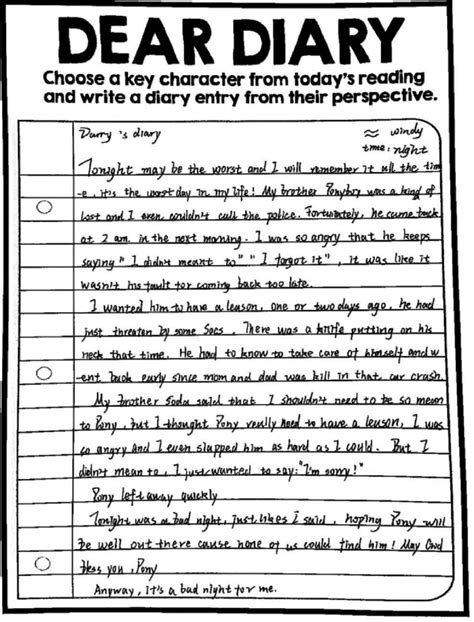 DEAR DIARY
Choose a key character from today's reading
and write a diary entry from their perspective.
Darry's diary ≈ windy
time: night
Tonight may be the worst and I will remember it all the tim
-e, it's the worst day in my life! My brother Ponyboy was a kind of
lost and I even couldn't call the police. Fortunately, he came back
at 2 am. in the next morning. I was so angry that he keeps
saying "I didn't meant to" "I forgot it", it was like it
wasn't his fault for coming back too late.
I wanted him to have a leason, one or two days ago, he had
just threaten by some Socs. There was a knife putting on his
neck that time. He had to know to take care of himself and w
-ent back early since mom and dad was kill in that car crash.
My brother Soda said that I shouldn't need to be so mean
to Pony, but I thought Pony really need to have a leason, I was
so angry and I even slapped him as hard as I could. But I
didn't mean to, I just wanted to say: "I'm sorry!"
Pony left away quickly
Tonight was a bad night, just likes I said, hoping Pony will
be well out there cause none of us could find him! May God
bless you, Pony
Anyway, it's a bad night for me.